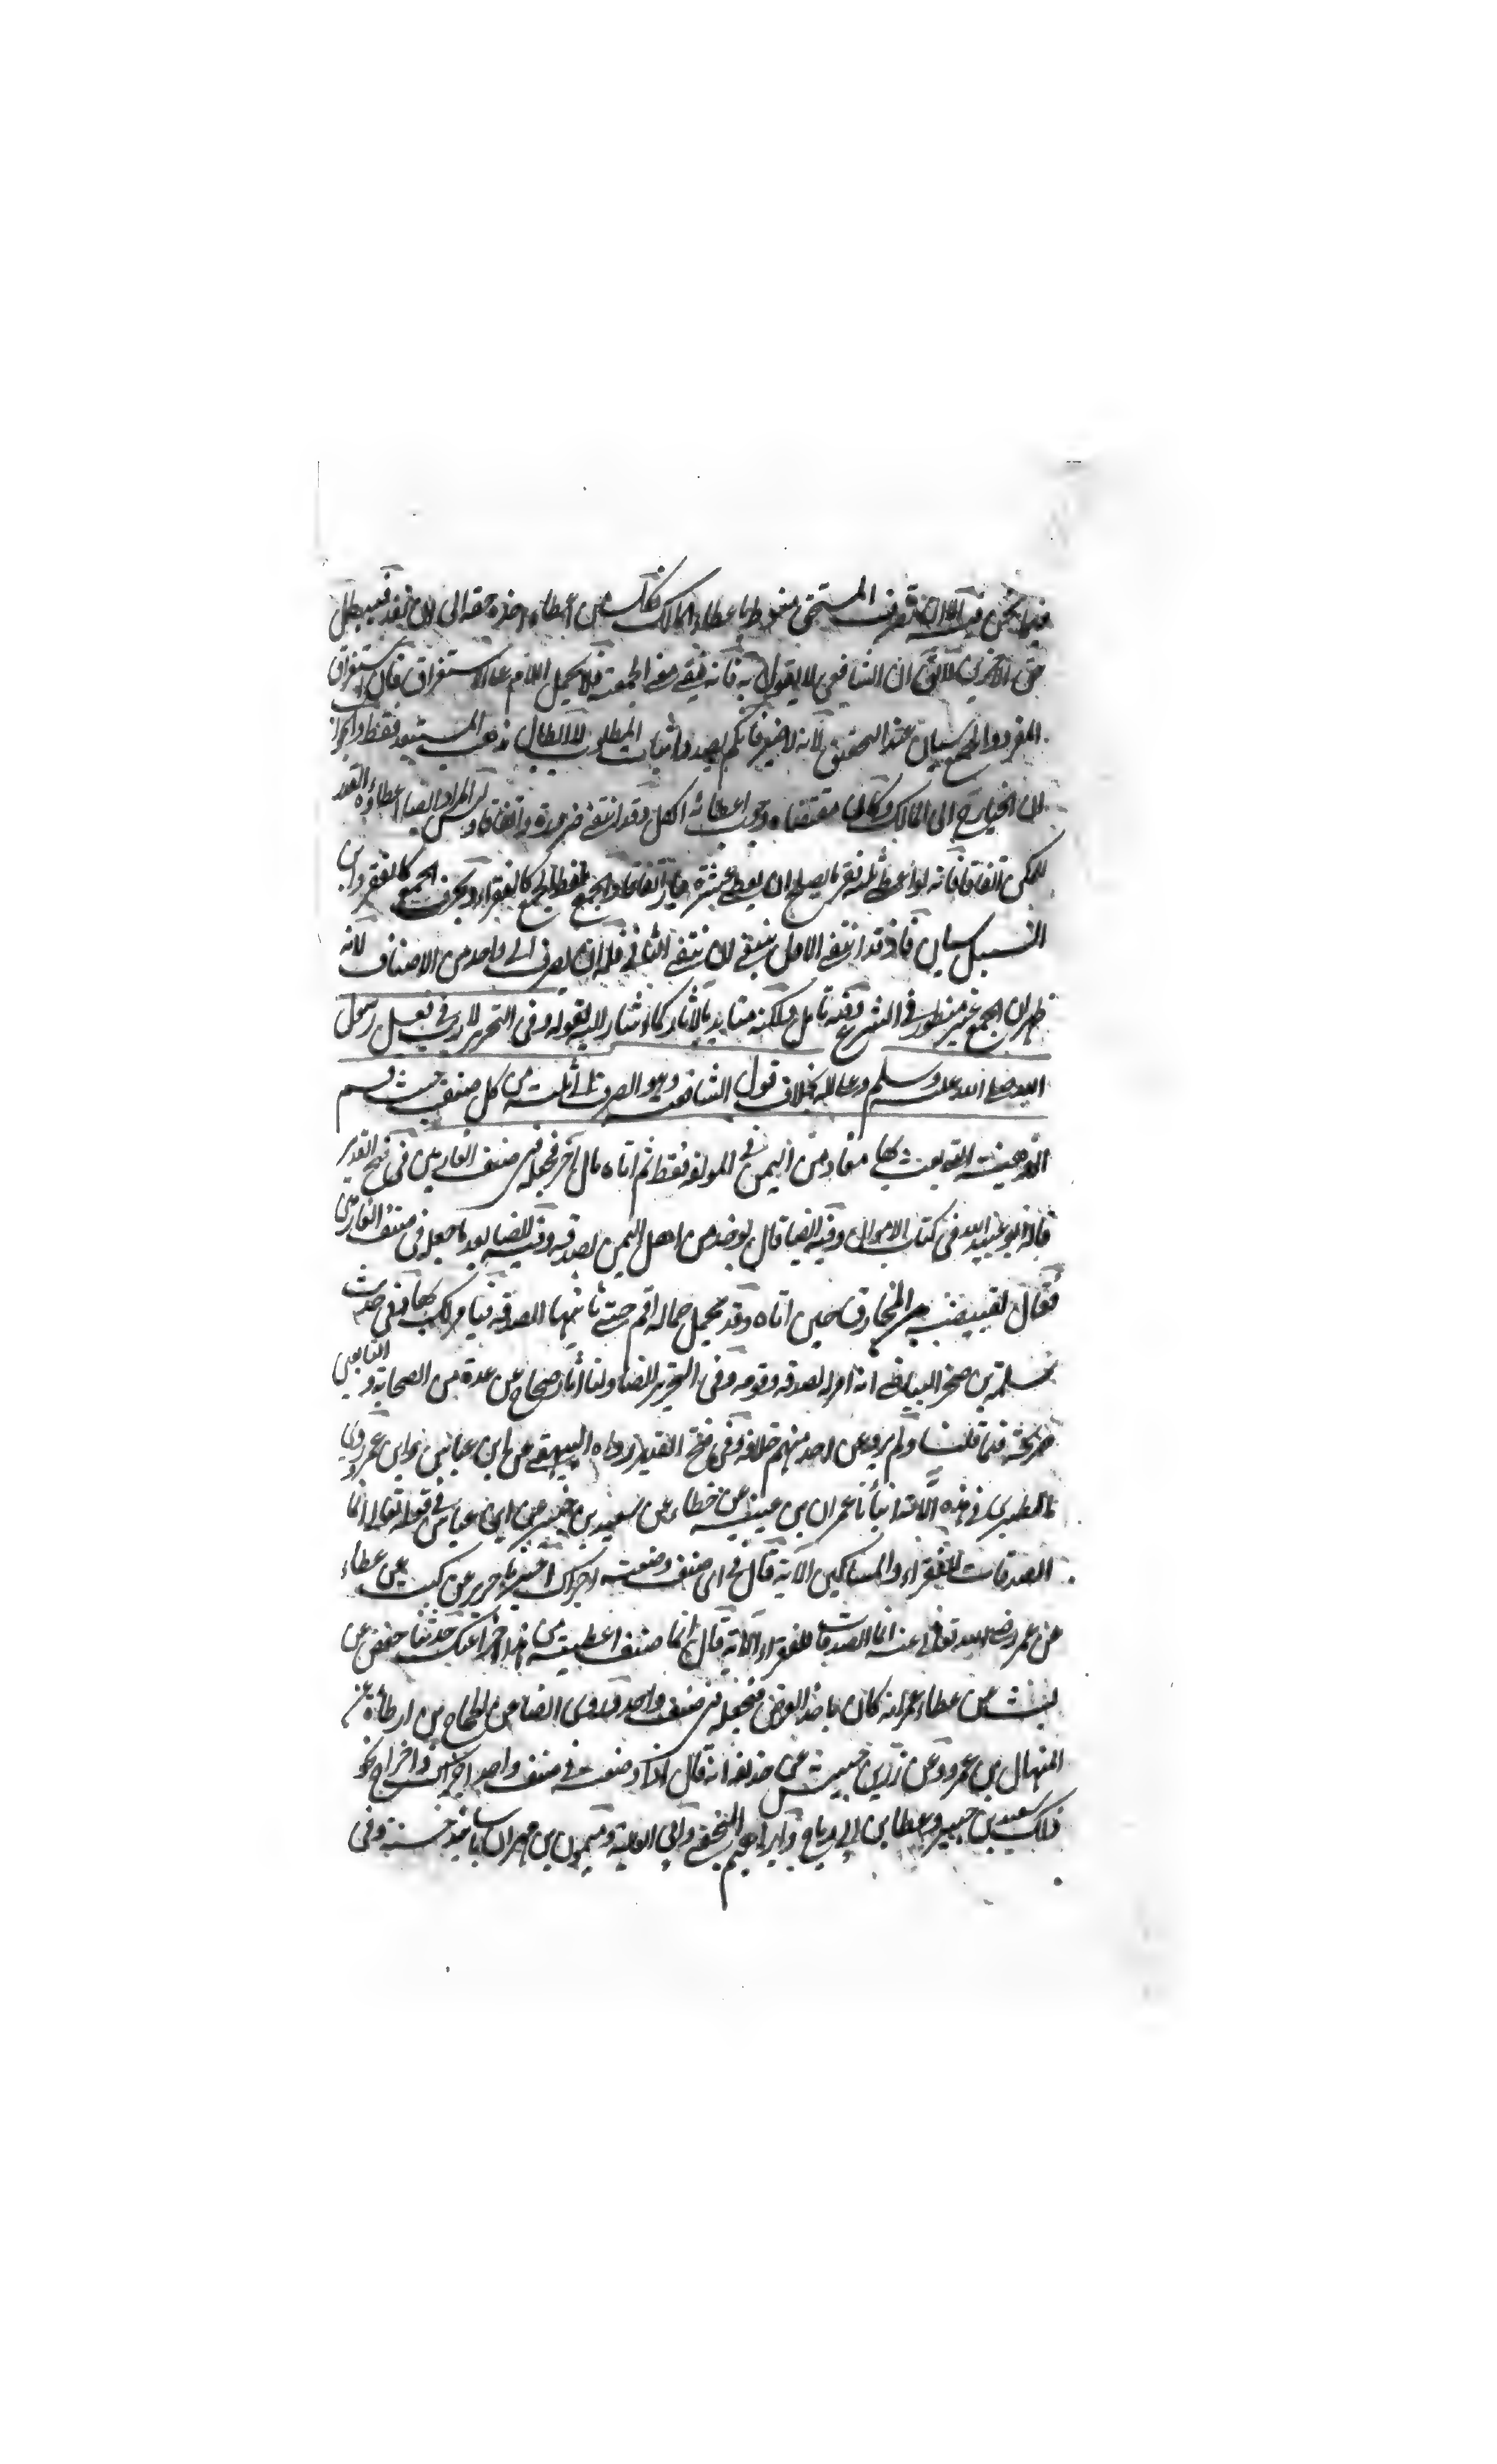 فيما نحن فيه لان تصرف المستحق منوط باعطاء المالك فكل من اعطاه اخذ حقه الى ان ينفد فيبطل
حق الآخرين لا يقال ان الشافعي لا يقول به فانه يبقى معنى الجمعية فلا يحمل اللام على الاستغراق فان استغراق
المفرد والجمع سيان عند التحقيق لانه لا ضير فانكم بصدد اثبات المطلوب لا ابطال مذهب المستشهد فقط والجواز
لان الخيار الى المالك وكان مقتضاه وجوب اعطائه الكل وقد انتفى ضرورة واتفاقا وليس المراد ايضا اعطاؤه القدر
الممكن اتفاقا فانه لو اعطى ثلثة نفر ما يصلح ان يعطى عشرة جاز اتفاقا والجمع بلفظ الجمع كالفقراء وبحرف الجمع كالفقير وابن
السبيل سيان فاذ قد انتفى الاول ينبغي ان ينتفي الثاني فله ان يصرف الى واحد من الاصناف لانه
ظهر ان الجمع غير منظور في الشرع وفيه تامل ولكنه متايد بالآثار كما اشار اليه بقوله وفي التحرير لا ريب في فعل رسول
الله صلى الله عليه وسلم وعلى آله بخلاف قول الشافعي وهو الصرف الى ثلثة من كل صنف حيث قسم
الذهيبة التي بعث بها معاذ من اليمن في المؤلفة فقط ثم اتاه مال آخر فجعله في صنف الغارمين في فتح القدير
قاله ابو عبيد الله في كتاب الاموال وفيه ايضا قال يوخذ من اهل اليمن الصدقة وفيه ايضا بعد ما جعل في صنف الغارمين
فقال لقبيصة بن المخارق حين اتاه وقد تحمل حمالة اقم حتى تاتينا الصدقة فنامر لك بها وفي حديث
سلمة بن صخر البياضي انه امر له بصدقة قومه وفي التحرير ايضا ولنا آثار صحاح عن عدة من الصحابة والتابعين
صريحة فيما قلنا ولم يرو عن احد منهم خلافه وفي فتح القدير رواه البيهقي عن ابن عباس وابن عمر وروى
الطبري في هذه الآية انبأنا عمران بن عيينة عن عطاء عن سعيد بن جبير عن ابن عباس في قوله تعالى انما
الصدقات للفقراء والمساكين الآية قال في اي صنف وضعته اجزاك اخبرنا جرير عن ليث عن عطاء
عن عمر رضي الله تعالى عنه انما الصدقات للفقراء الآية قال ايما صنف اعطيته من هذا اجزأ عنك حدثنا حفص عن
ليث عن عطاء عن عمر انه كان ياخذ الفرض فيجعله في صنف واحد وروى ايضا عن الحجاج بن ارطاة عن
المنهال بن عمرو عن زر بن حبيش عن حذيفة انه قال اذا وضعت في صنف واحد اجزاك واخرج نحو
ذلك سعيد بن جبير وعطا بن ابي رباح وابراهيم النخعي وابي العلية وميمون بن مهران باسانيد حسنة وفي